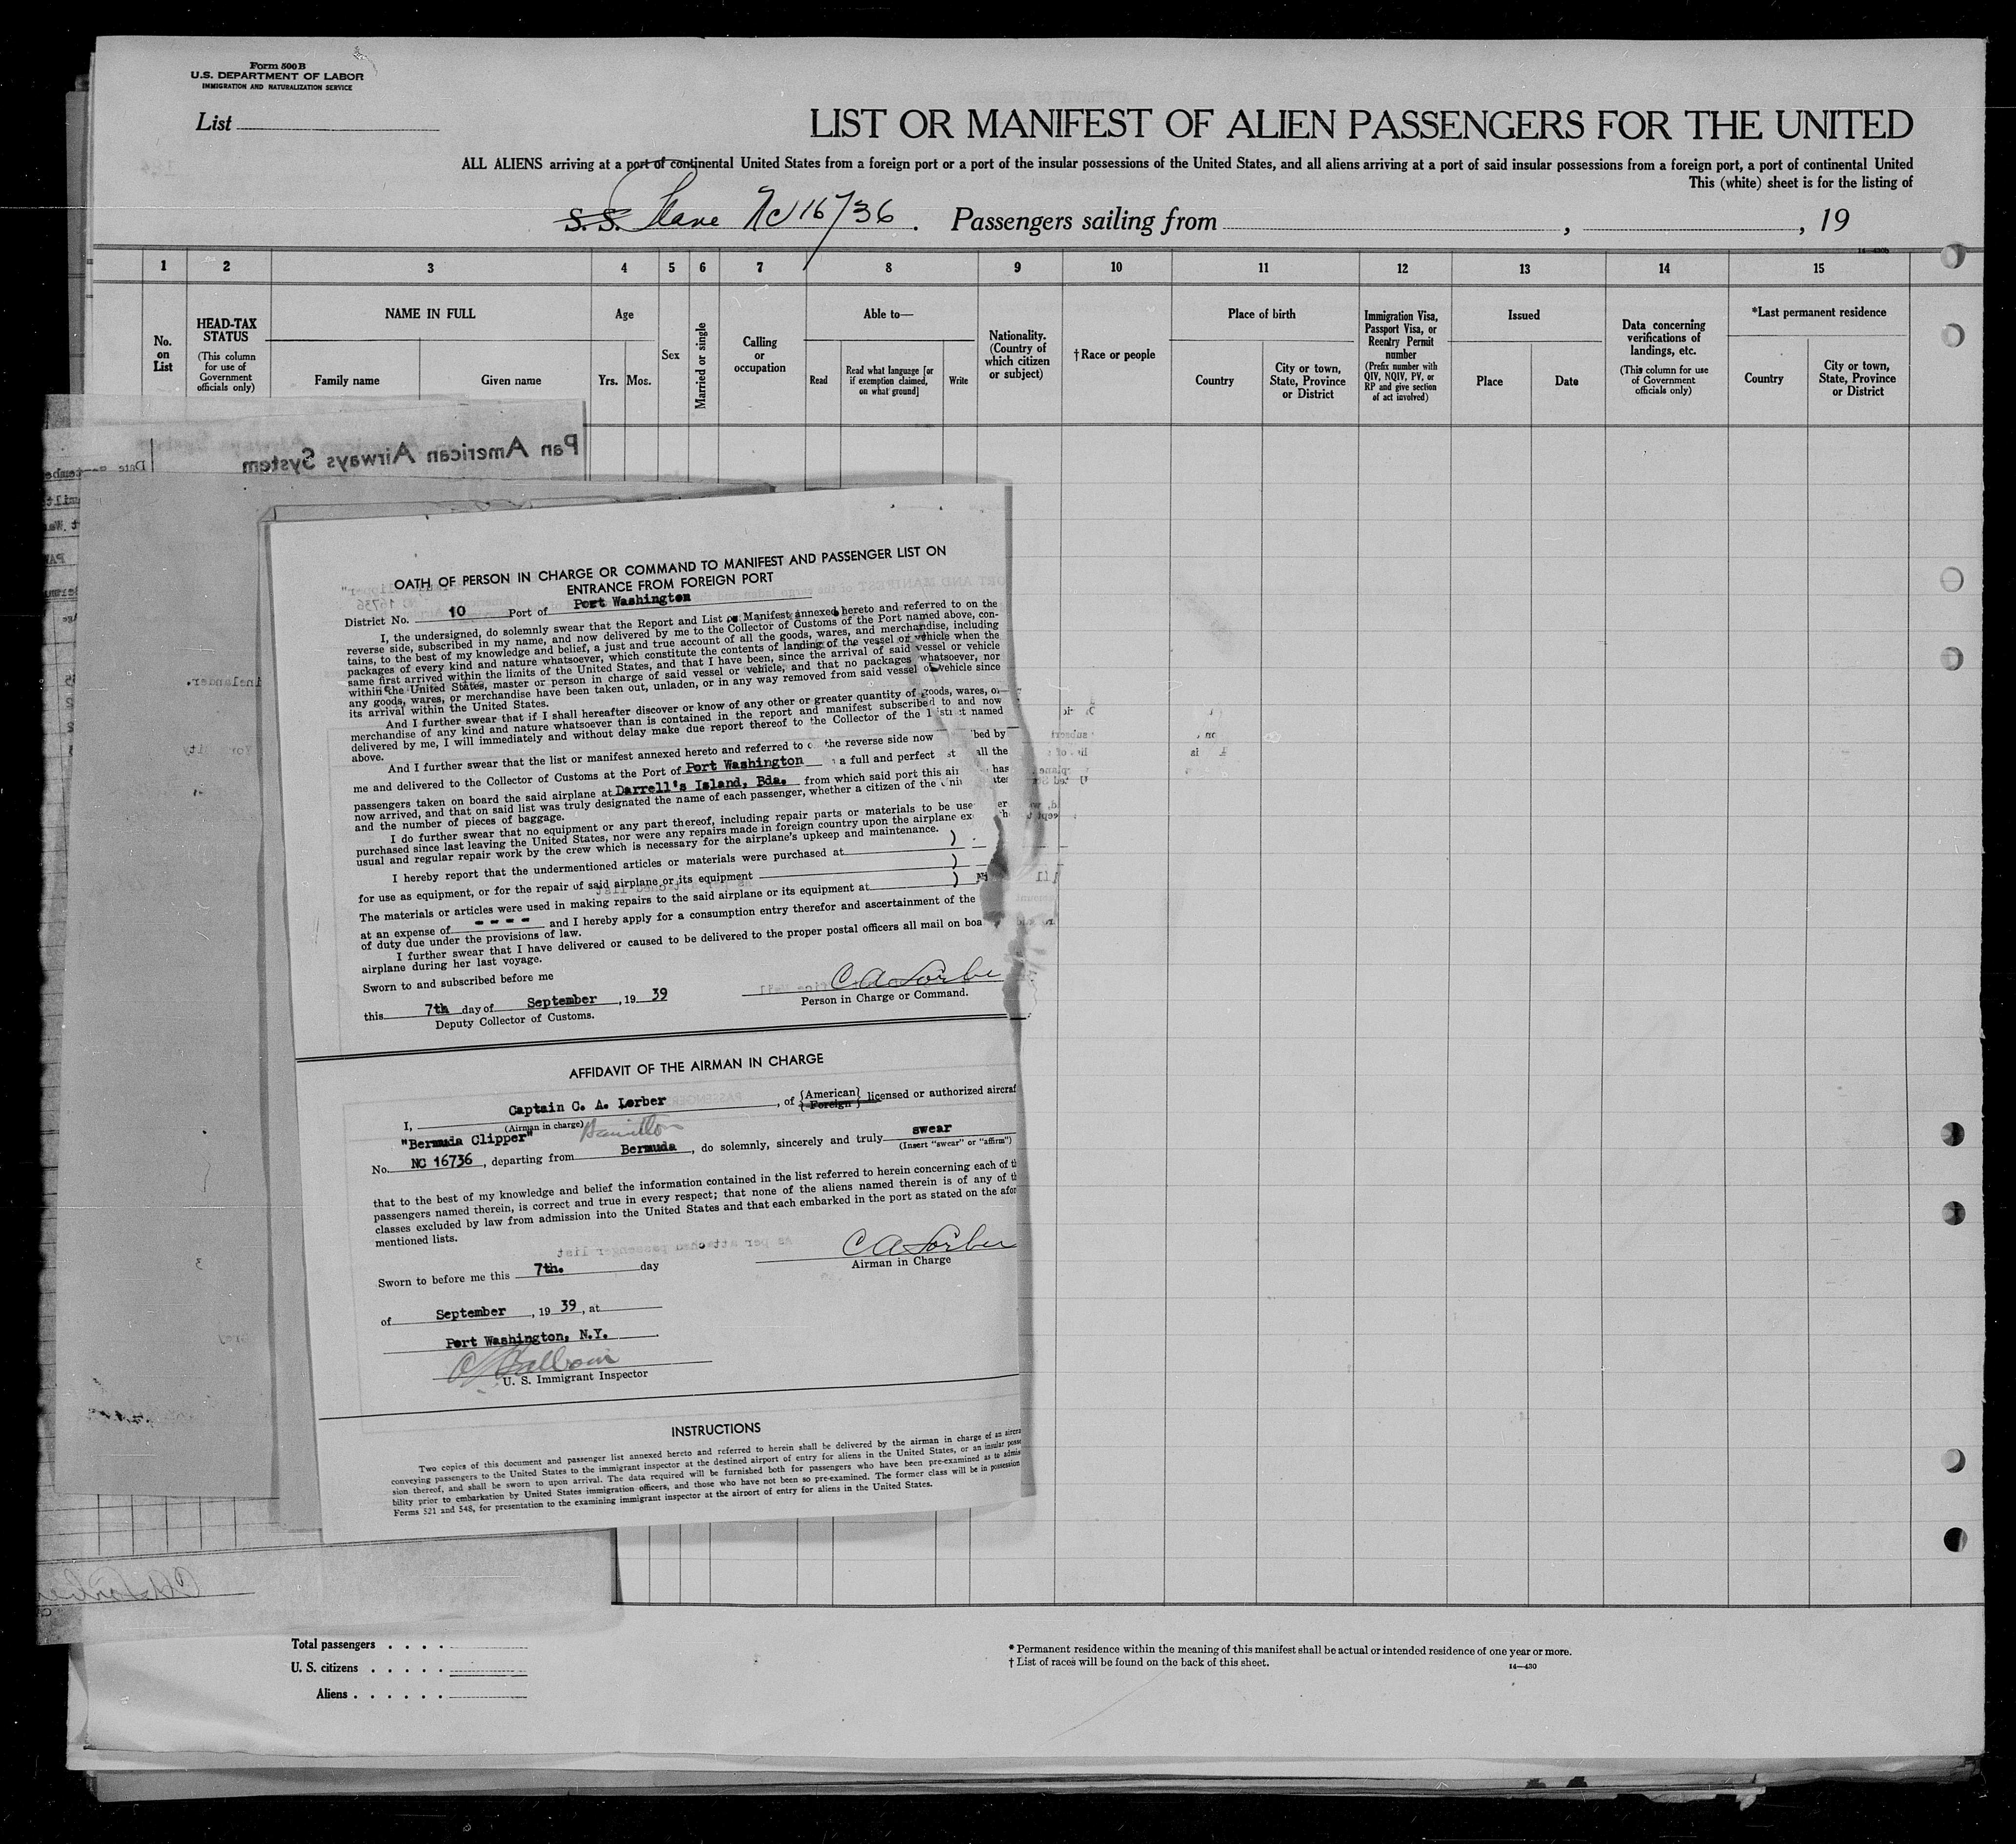 Form 500 B
U.S. DEPARTMENT OF LABOR
IMMIGRATION AND NATURALIZATION SERVICE
List
LIST OR MANIFEST OF ALIEN PASSENGERS FOR THE UNITED
ALL ALIENS arriving at a port of continental United States from a foreign port or a port of the insular possessions of the United States, and all aliens arriving at a port of said insular possessions from a foreign port, a port of continental United
This (white) sheet is for the listing of
S. S. Plane NC 16736. Passengers sailing from , , 19
1 2 3 4 5 6 7 8 9 10 11 12 13 14 15
No. on List
HEAD-TAX STATUS
(This column for use of Government officials only)
NAME IN FULL
Family name
Given name
Age
Yrs.
Mos.
Sex
Married or single
Calling or occupation
Able to—
Read
Read what language [or if exemption claimed, on what ground]
Write
Nationality. (Country of which citizen or subject)
† Race or people
Place of birth
Country
City or town, State, Province or District
Immigration Visa, Passport Visa, or Reentry Permit number
(Prefix number with QIV, NQIV, PV, or RP and give section of act involved)
Issued
Place
Date
Data concerning verifications of landings, etc.
(This column for use of Government officials only)
*Last permanent residence
Country
City or town, State, Province or District
Pan American Airways System
Date
OATH OF PERSON IN CHARGE OR COMMAND TO MANIFEST AND PASSENGER LIST ON
ENTRANCE FROM FOREIGN PORT
District No. 10 Port of Port Washington
I, the undersigned, do solemnly swear that the Report and List or Manifest annexed hereto and referred to on the
reverse side, subscribed in my name, and now delivered by me to the Collector of Customs of the Port named above, con-
tains, to the best of my knowledge and belief, a just and true account of all the goods, wares, and merchandise, including
packages of every kind and nature whatsoever, which constitute the contents of landing of the vessel or vehicle when the
same first arrived within the limits of the United States, and that I have been, since the arrival of said vessel or vehicle
within the United States, master or person in charge of said vessel or vehicle, and that no packages whatsoever, nor
any goods, wares, or merchandise have been taken out, unladen, or in any way removed from said vessel or vehicle since
its arrival within the United States.
And I further swear that if I shall hereafter discover or know of any other or greater quantity of goods, wares, or
merchandise of any kind and nature whatsoever than is contained in the report and manifest subscribed to and now
delivered by me, I will immediately and without delay make due report thereof to the Collector of the District named
above.
And I further swear that the list or manifest annexed hereto and referred to the reverse side now
me and delivered to the Collector of Customs at the Port of Port Washington a full and perfect all the
passengers taken on board the said airplane at Darrell's Island, Bda. from which said port this has
now arrived, and that on said list was truly designated the name of each passenger, whether a citizen of the
and the number of pieces of baggage.
I do further swear that no equipment or any part thereof, including repair parts or materials to be
purchased since last leaving the United States, nor were any repairs made in foreign country upon the airplane
usual and regular repair work by the crew which is necessary for the airplane's upkeep and maintenance.
I hereby report that the undermentioned articles or materials were purchased at )
for use as equipment, or for the repair of said airplane or its equipment )
The materials or articles were used in making repairs to the said airplane or its equipment at )
at an expense of - - - - and I hereby apply for a consumption entry therefor and ascertainment of the
of duty due under the provisions of law.
I further swear that I have delivered or caused to be delivered to the proper postal officers all mail on
airplane during her last voyage.
Sworn to and subscribed before me
this 7th day of September, 19 39
Deputy Collector of Customs.
C A Lorber
Person in Charge or Command.
AFFIDAVIT OF THE AIRMAN IN CHARGE
I, Captain C. A. Lorber, of {American} {Foreign} licensed or authorized
(Airman in charge)
"Bermuda Clipper" Hamilton
No. NC 16736, departing from Bermuda, do solemnly, sincerely and truly swear
(Insert "swear" or "affirm")
that to the best of my knowledge and belief the information contained in the list referred to herein concerning each of
passengers named therein, is correct and true in every respect; that none of the aliens named therein is of any of
classes excluded by law from admission into the United States and that each embarked in the port as stated on the
mentioned lists.
As per attached passenger list
Sworn to before me this 7th. day
C A Lorber
Airman in Charge
of September, 19 39, at
Port Washington, N.Y.
U. S. Immigrant Inspector
INSTRUCTIONS
Two copies of this document and passenger list annexed hereto and referred to herein shall be delivered by the airman in charge of an
conveying passengers to the United States to the immigrant inspector at the destined airport of entry for aliens in the United States, or an insular
sion thereof, and shall be sworn to upon arrival. The data required will be furnished both for passengers who have been pre-examined as to
bility prior to embarkation by United States immigration officers, and those who have not been so pre-examined. The former class will be in possession
Forms 521 and 548, for presentation to the examining immigrant inspector at the airport of entry for aliens in the United States.
Total passengers . . . .
U. S. citizens . . . . .
Aliens . . . . . .
* Permanent residence within the meaning of this manifest shall be actual or intended residence of one year or more.
† List of races will be found on the back of this sheet.
14—430